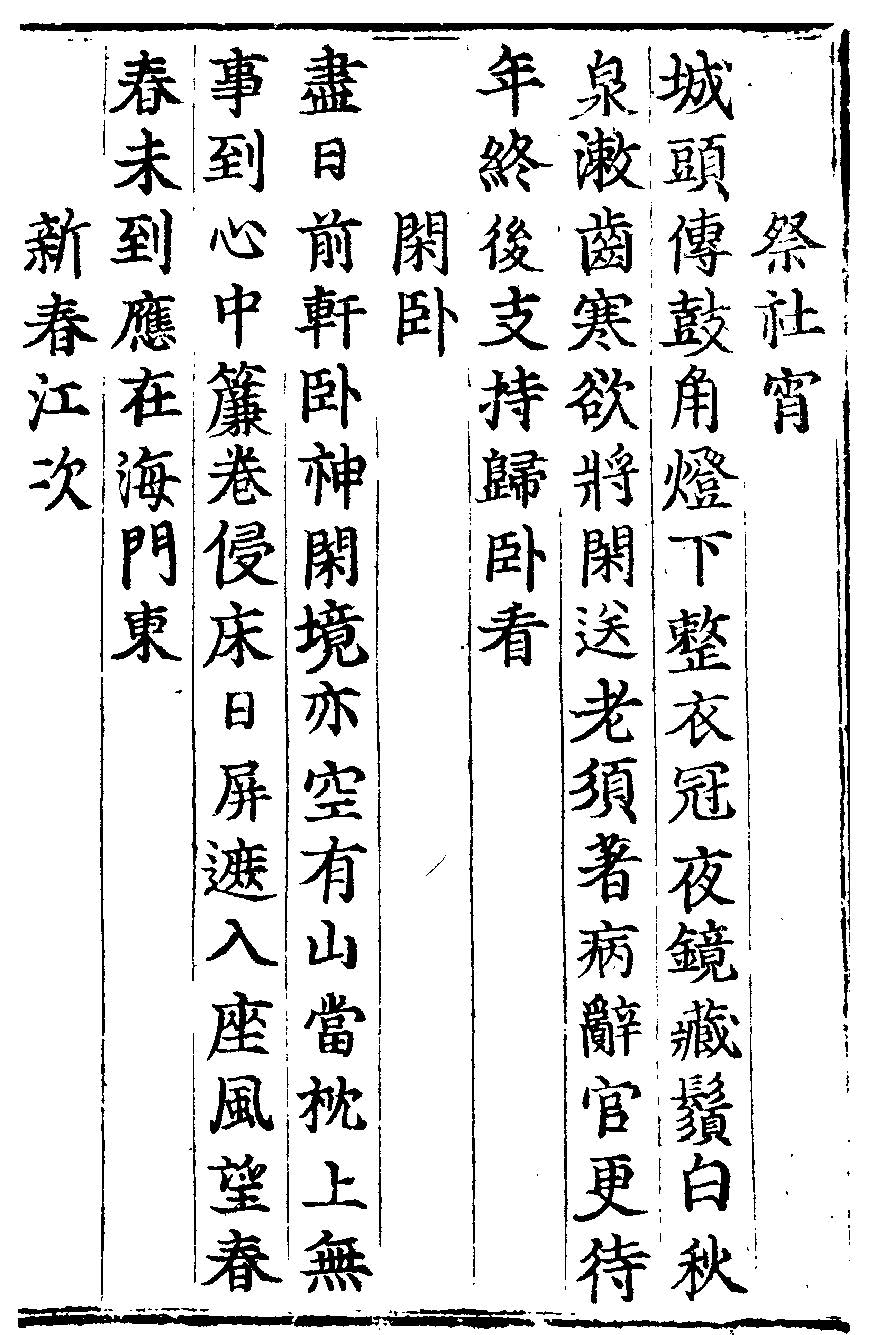 祭社宵
城頭傳鼓角燈下整衣冠夜鏡藏鬚白秋
泉漱齒寒欲將閑送老須著病辭官更待
年終後支持歸卧看
閑卧
盡日前軒卧神閑境亦空有山當枕上無
事到心中簾卷侵床日屏遮入座風望春
春未到應在海門東
新春江次